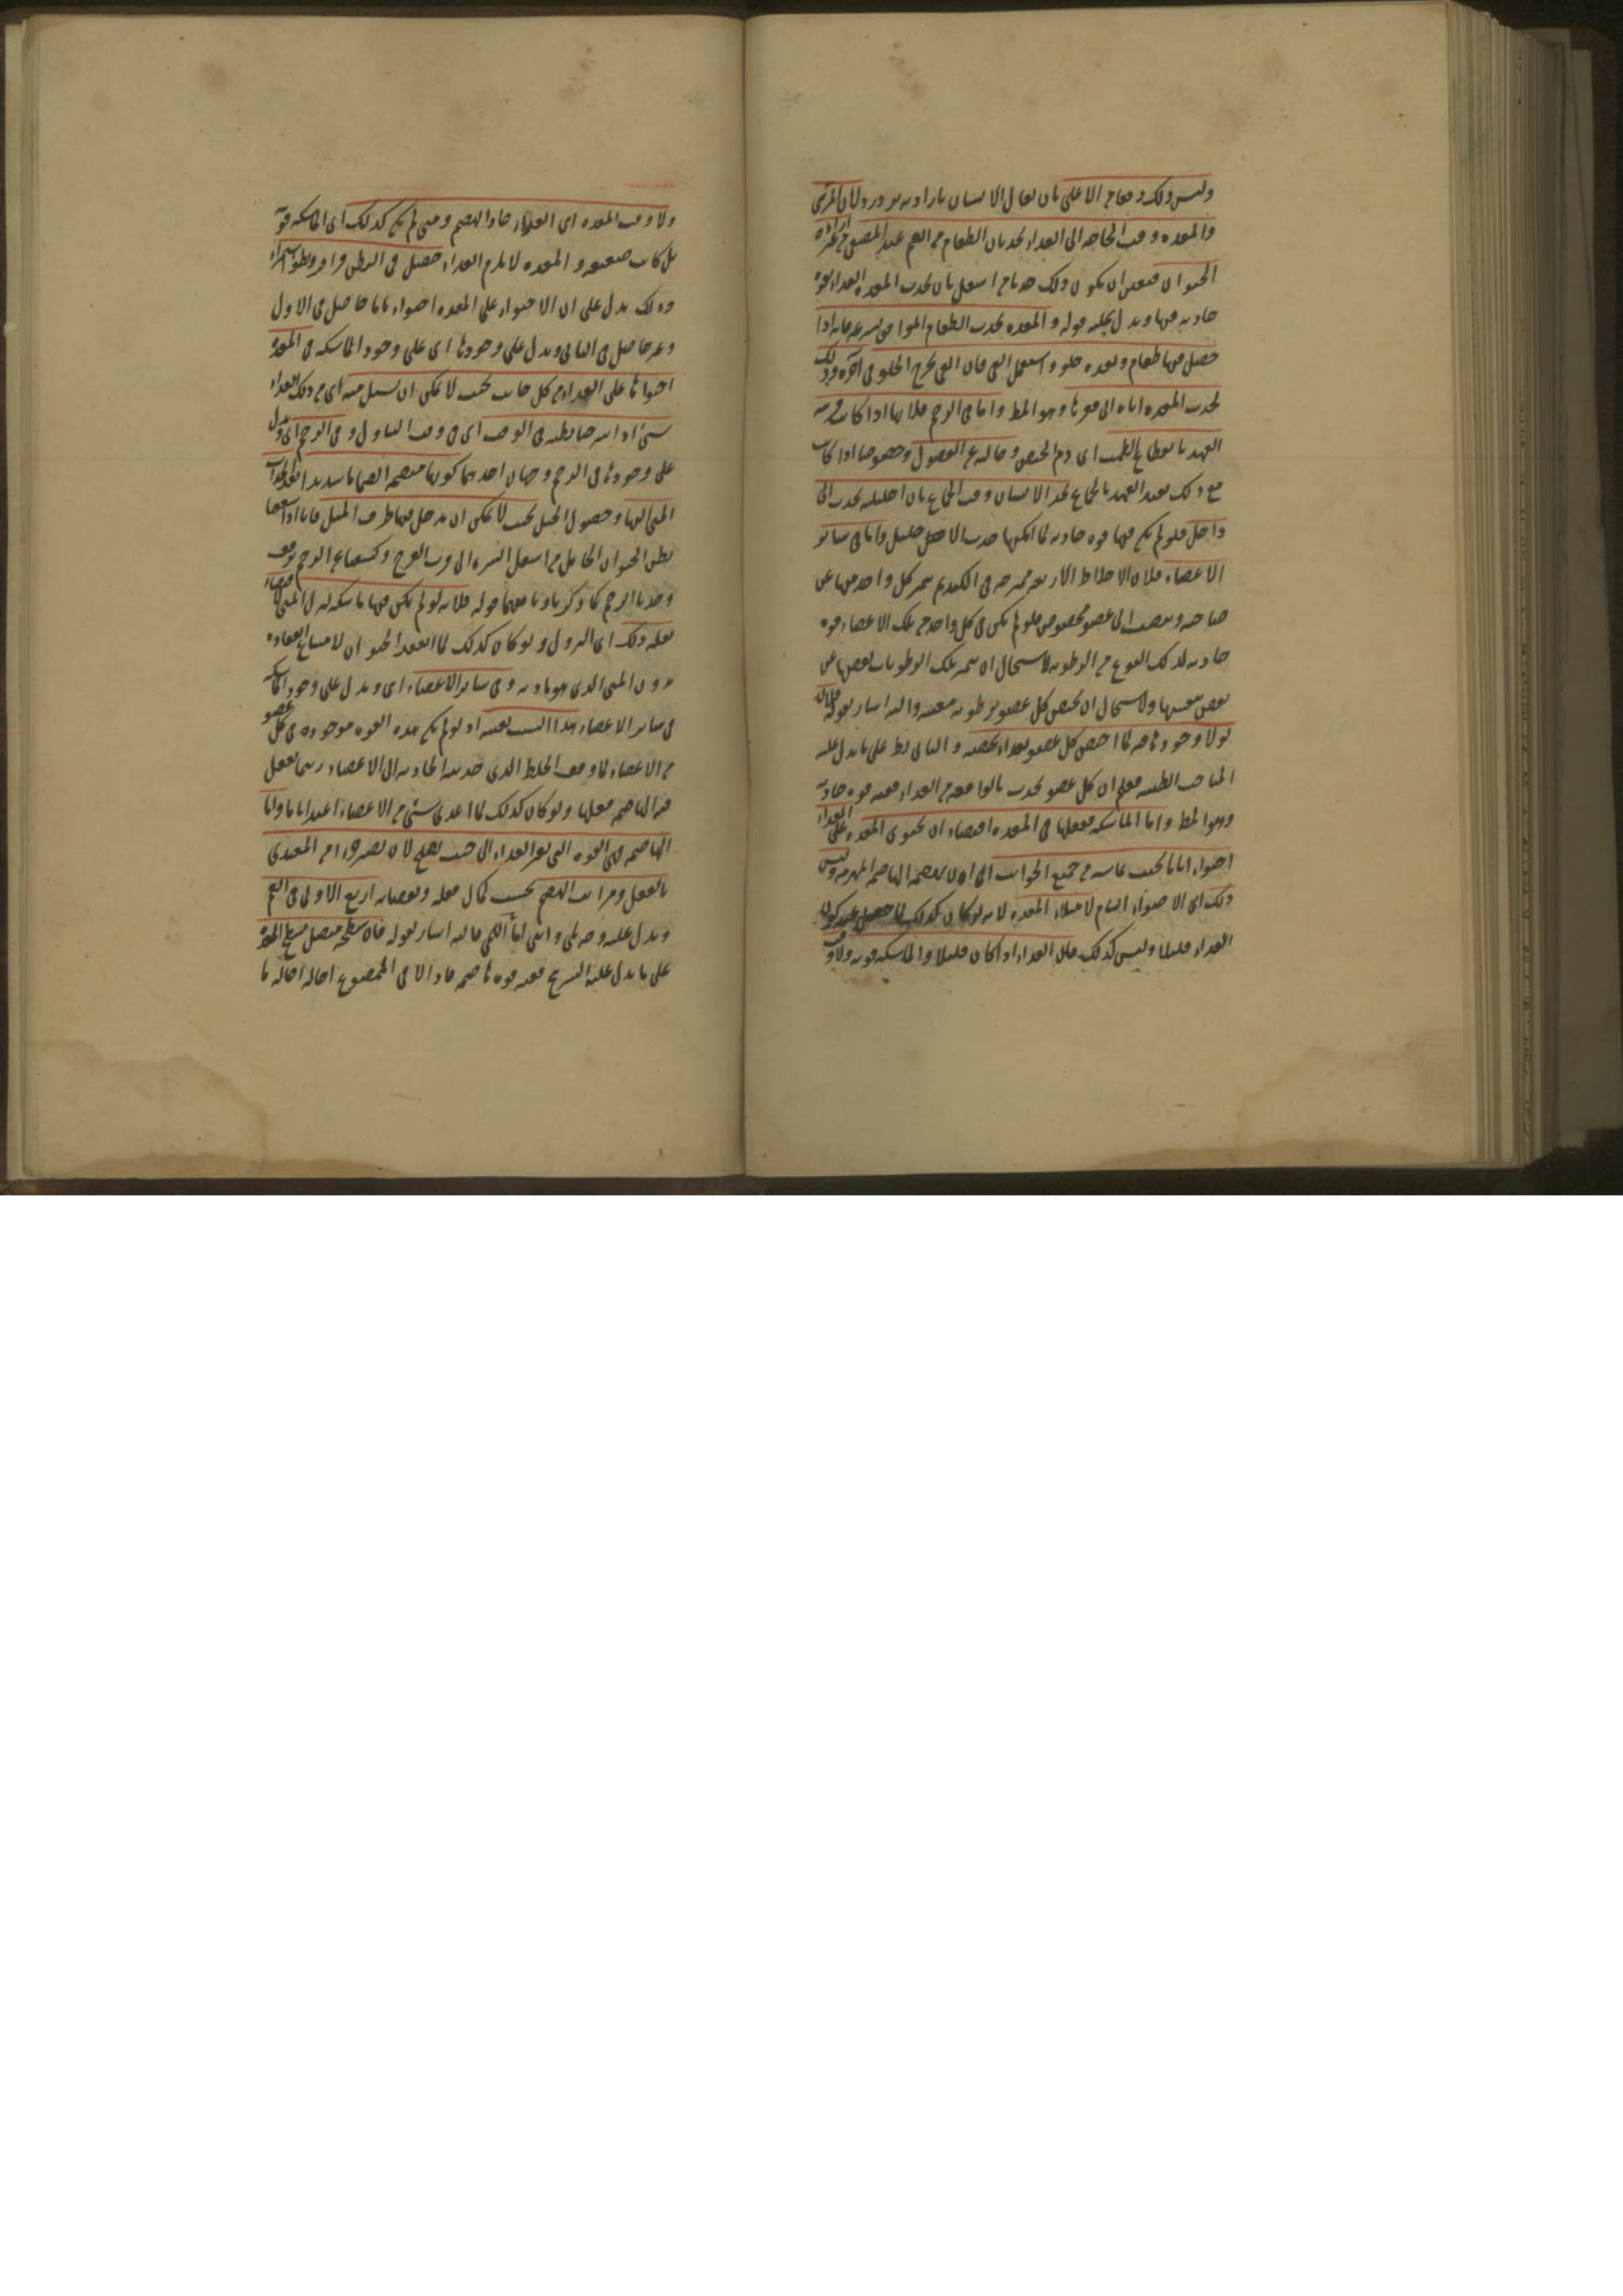 وليس ذلك دفعا من الاعلى بان يقال الانسان بارادته يزدرد لان المرئ
والمعدة وقت الحاجة الى الغذاء يجذبان الطعام من الفم عند المضغ من غير ارادة
الحيوان فتعين ان يكون ذلك جذبا من اسفل بان يجذب المعدة الغذاء بقوة
جاذبة فيها ويدل عليه قوله والمعدة يجذب الطعام الموافق بسرعة فانه اذا
حصل فيها طعام وبعده حلو واستعمل القئ فان القئ يخرج الحلو في آخره وذلك
لجذب المعدة اياه الى قعرها وهو المط واما في الرحم فلانها اذا كانت قريبة
العهد بانقطاع الطمث اى دم الحيض وخالية عن الفضول وخصوصا اذا كانت
مع ذلك بعيد العهد بالجماع يجد الانسان وقت الجماع بان احليله يجذب الى
داخل فلو لم يكن فيها قوة جاذبة لما امكنها جذب الاحليل واما في سائر
الاعضاء فلان الاخلاط الاربعة ممتزجة في الكبد ثم يتميز كل واحد منها عن
صاحبه وينصب الى عضو مخصوص فلو لم يكن في كل واحد من تلك الاعضاء قوة
جاذبة لذلك النوع من الرطوبة لاستحال ان يتميز تلك الرطوبات بعضها عن
بعض بنفسها ولاستحال ان يختص كل عضو برطوبة معينة واليه اشار بقوله
لولا وجودها فيه لما اختص كل عضو بغذاء يخصه والتالى بط على ما يدل عليه
المباحث الطبية فعلم ان كل عضو يجذب ما يوافقه من الغذاء ففيه قوة جاذبة
وهو المط واما الماسكة ففعلها في المعدة اقتضاء ان يحتوى المعدة على الغذاء
احتواء تاما بحيث يماسه من جميع الجوانب الى ان يهضمه الهاضمة وليس
ذلك اى الاحتواء التام لامتلاء المعدة لانه لو كان كذلك لما حصل عند كون
الغذاء قليلا وليس كذلك فان الغذاء اذا كان قليلا والماسكة قوية ولاقت
ولاقت المعدة اى الغذاء جاد الهضم ومتى لم يكن كذلك اى الماسكة قوية
بل كانت ضعيفة والمعدة لا يلزم الغذاء حصل في البطن قراقر وبطؤ استمراء
وذلك يدل على ان الاحتواء على المعدة احتواء تاما حاصل في الاول
وغير حاصل في الثانى ويدل على وجودها اى على وجود الماسكة في المعدة
احتواها على الغذاء من كل جانب بحيث لا يمكن ان يسيل منه اى من ذلك الغذاء
شئ اذا شرحنا بطنه في الوقت اى في وقت التناول وفي الرحم اى ويدل
على وجودها في الرحم وجهان احدهما كونها منضمة انضماما شديدا بعد انجذاب
المنى اليها وحصول الحبل بحيث لا يمكن ان يدخل فيها طرف الميل فانا اذا شققنا
بطن الحيوان الحامل من اسفل السرة الى قرب الفرج وكشفنا عن الرحم برفق
وجدنا الرحم كما ذكرنا وثانيهما قوله فلانه لو لم يكن فيها ماسكة لنزل المنى
بثقله وذلك اى النزول ولو كان كذلك لما انعقد الحيوان لامتناع انعقاده
بدون المنى الذى هو مادته وفي سائر الاعضاء اى ويدل على وجود الماسكة
في سائر الاعضاء هذا السبب بعينه اذ لو لم يكن هذه القوة موجودة في كل عضو
من الاعضاء لما وقف الخلط الذى جذبته الجاذبة الى الاعضاء ريثما يفعل
فيه الهاضمة فعلها ولو كان كذلك لما اغتذى شئ من الاعضاء اغتذاء تاما واما
الهاضمة فهى القوة التى يغير الغذاء الى حيث يصلح لان يصير جزءا من المغتذى
بالفعل ومراتب الهضم بحسب كمال فعله ونقصانه اربع الاولى في الفم
ويدل عليه وجه لمى وانى اما اللمى فاليه اشار بقوله فان سطحه متصل بسطح المعدة
على ما يدل عليه التشريح ففيه قوة هاضمة فاذا لاقى الممضوغ احاله احالة ما